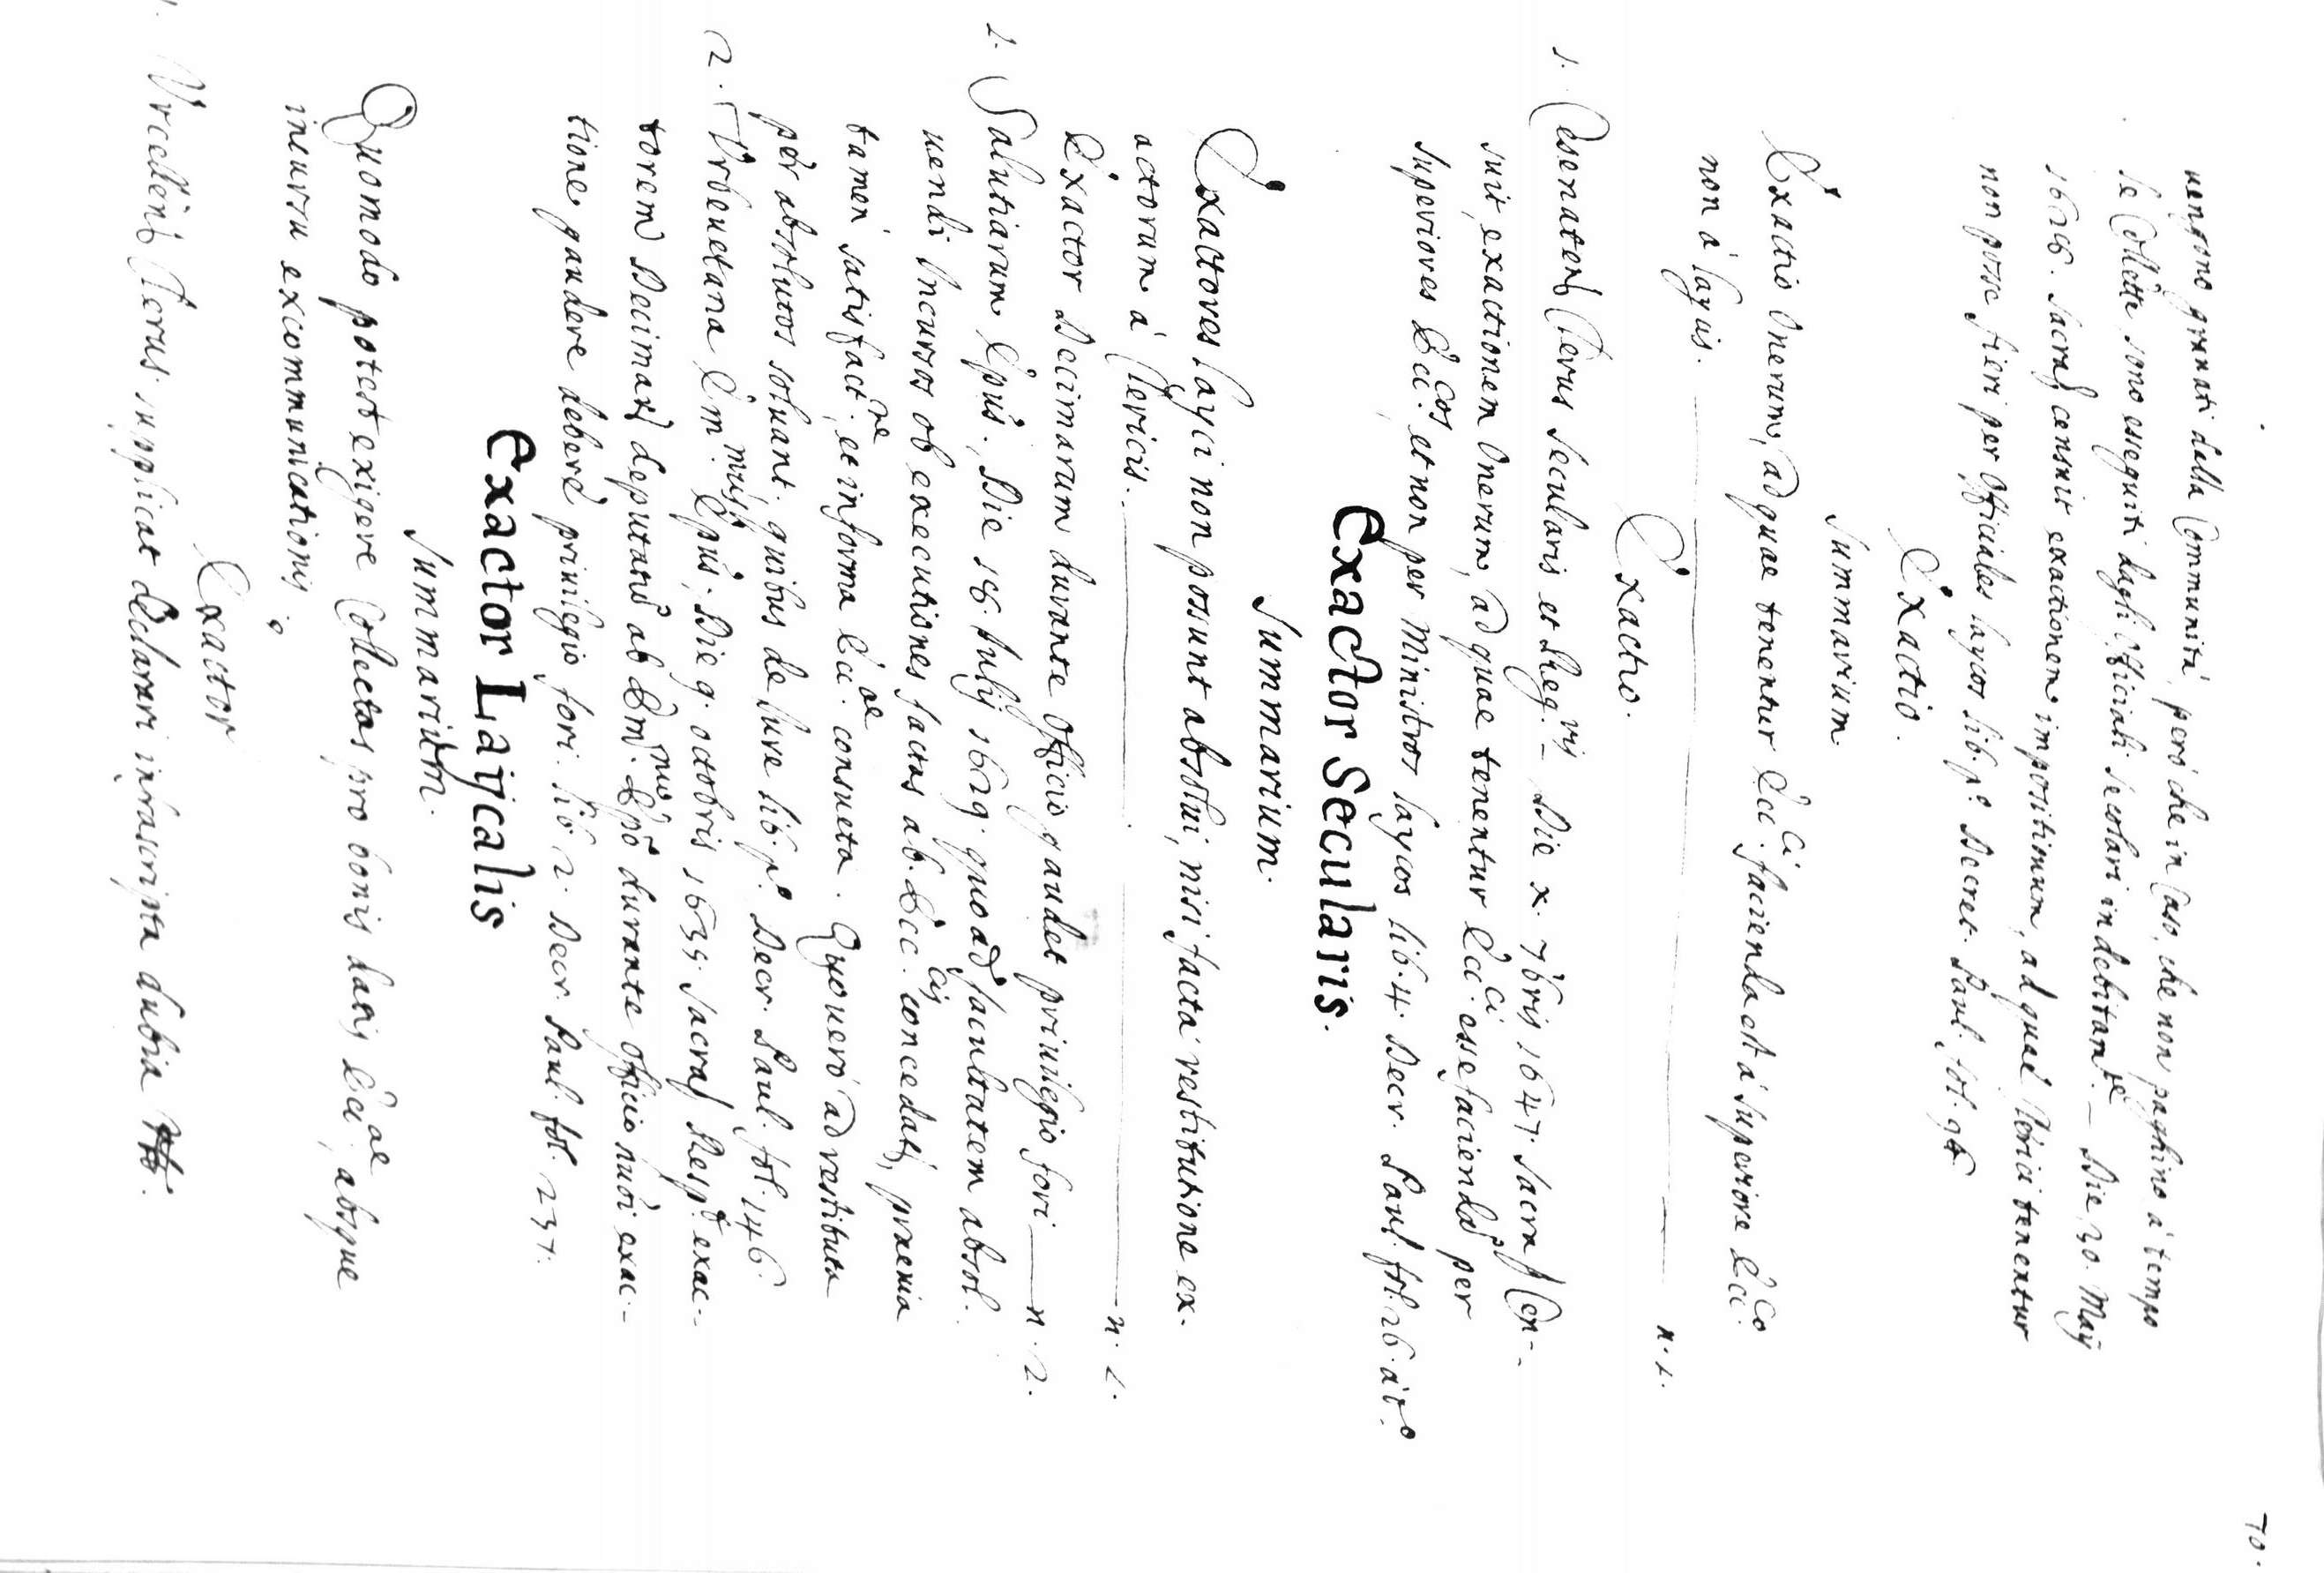 70.
uengono grauati dalla Communità, però che in Caso, che non paghino à tempo
le Collette sono esseguiti dagli Officiali Secolari indebitam.te – Die 30. Maij
1628. Sacra censuit exactionem impositionum, ad quas Clerici tenentur
non posse fieri per Officiales laycos lib. p.o Decret. Paul. fol. 98
Exactio.
Summarium.
Exactio Onerum, ad quae tenentur Ecc.ci facienda est à Superiore Ecc.co
non à laycis. n. 1.
Exactio.
1. Casenaten Clerus Secularis et Reg.ris – Die x. 7bris 1647. Sacra Cen-
suit, exactionem Onerum, ad quae tenentur Ecc.ci esse faciendas per
superiores Ecc.cos et non per Ministros laycos lib. 4. Decr. Paul. fol. 26. à t.o
Exactor Secularis.
Summarium.
Exactores layci non possunt absolui, nisi facta restitutione ex-
actorum à Clericis. n. 1.
Exactor Decimarum durante Officio gaudet priuilegio fori n. 2.
1. Salutiarum Epus. Die 18. Julij 1629. quo ad facultatem absol-
uendi Incursos ob executiones factas ab Ecc.cis concedat, praeuia
tamen satisfact.ne, et in forma Ecc.ae consueta. Quo uero ad restituta
per absolutos soluant. quibus de Jure lib. p.o Decr. Paul. fol. 146.
2. Vrbeuetana Em.mus Epus. Die 9. octobris 1635. Sacra Resp.t exac-
torem Decimarum deputatum ab Em.mo Epo durante officio suo exac-
tione gaudere debere priuilegio fori. lib. 2. Decr. Paul. fol. 237.
Exactor Laijcalis
Summarium.
Quomodo potest exigere Collectas pro bonis datis Ecc.ae, absque
incursu excommunicationis.
Exactor
1. Clerus supplicat Declarari infrascripta dubia